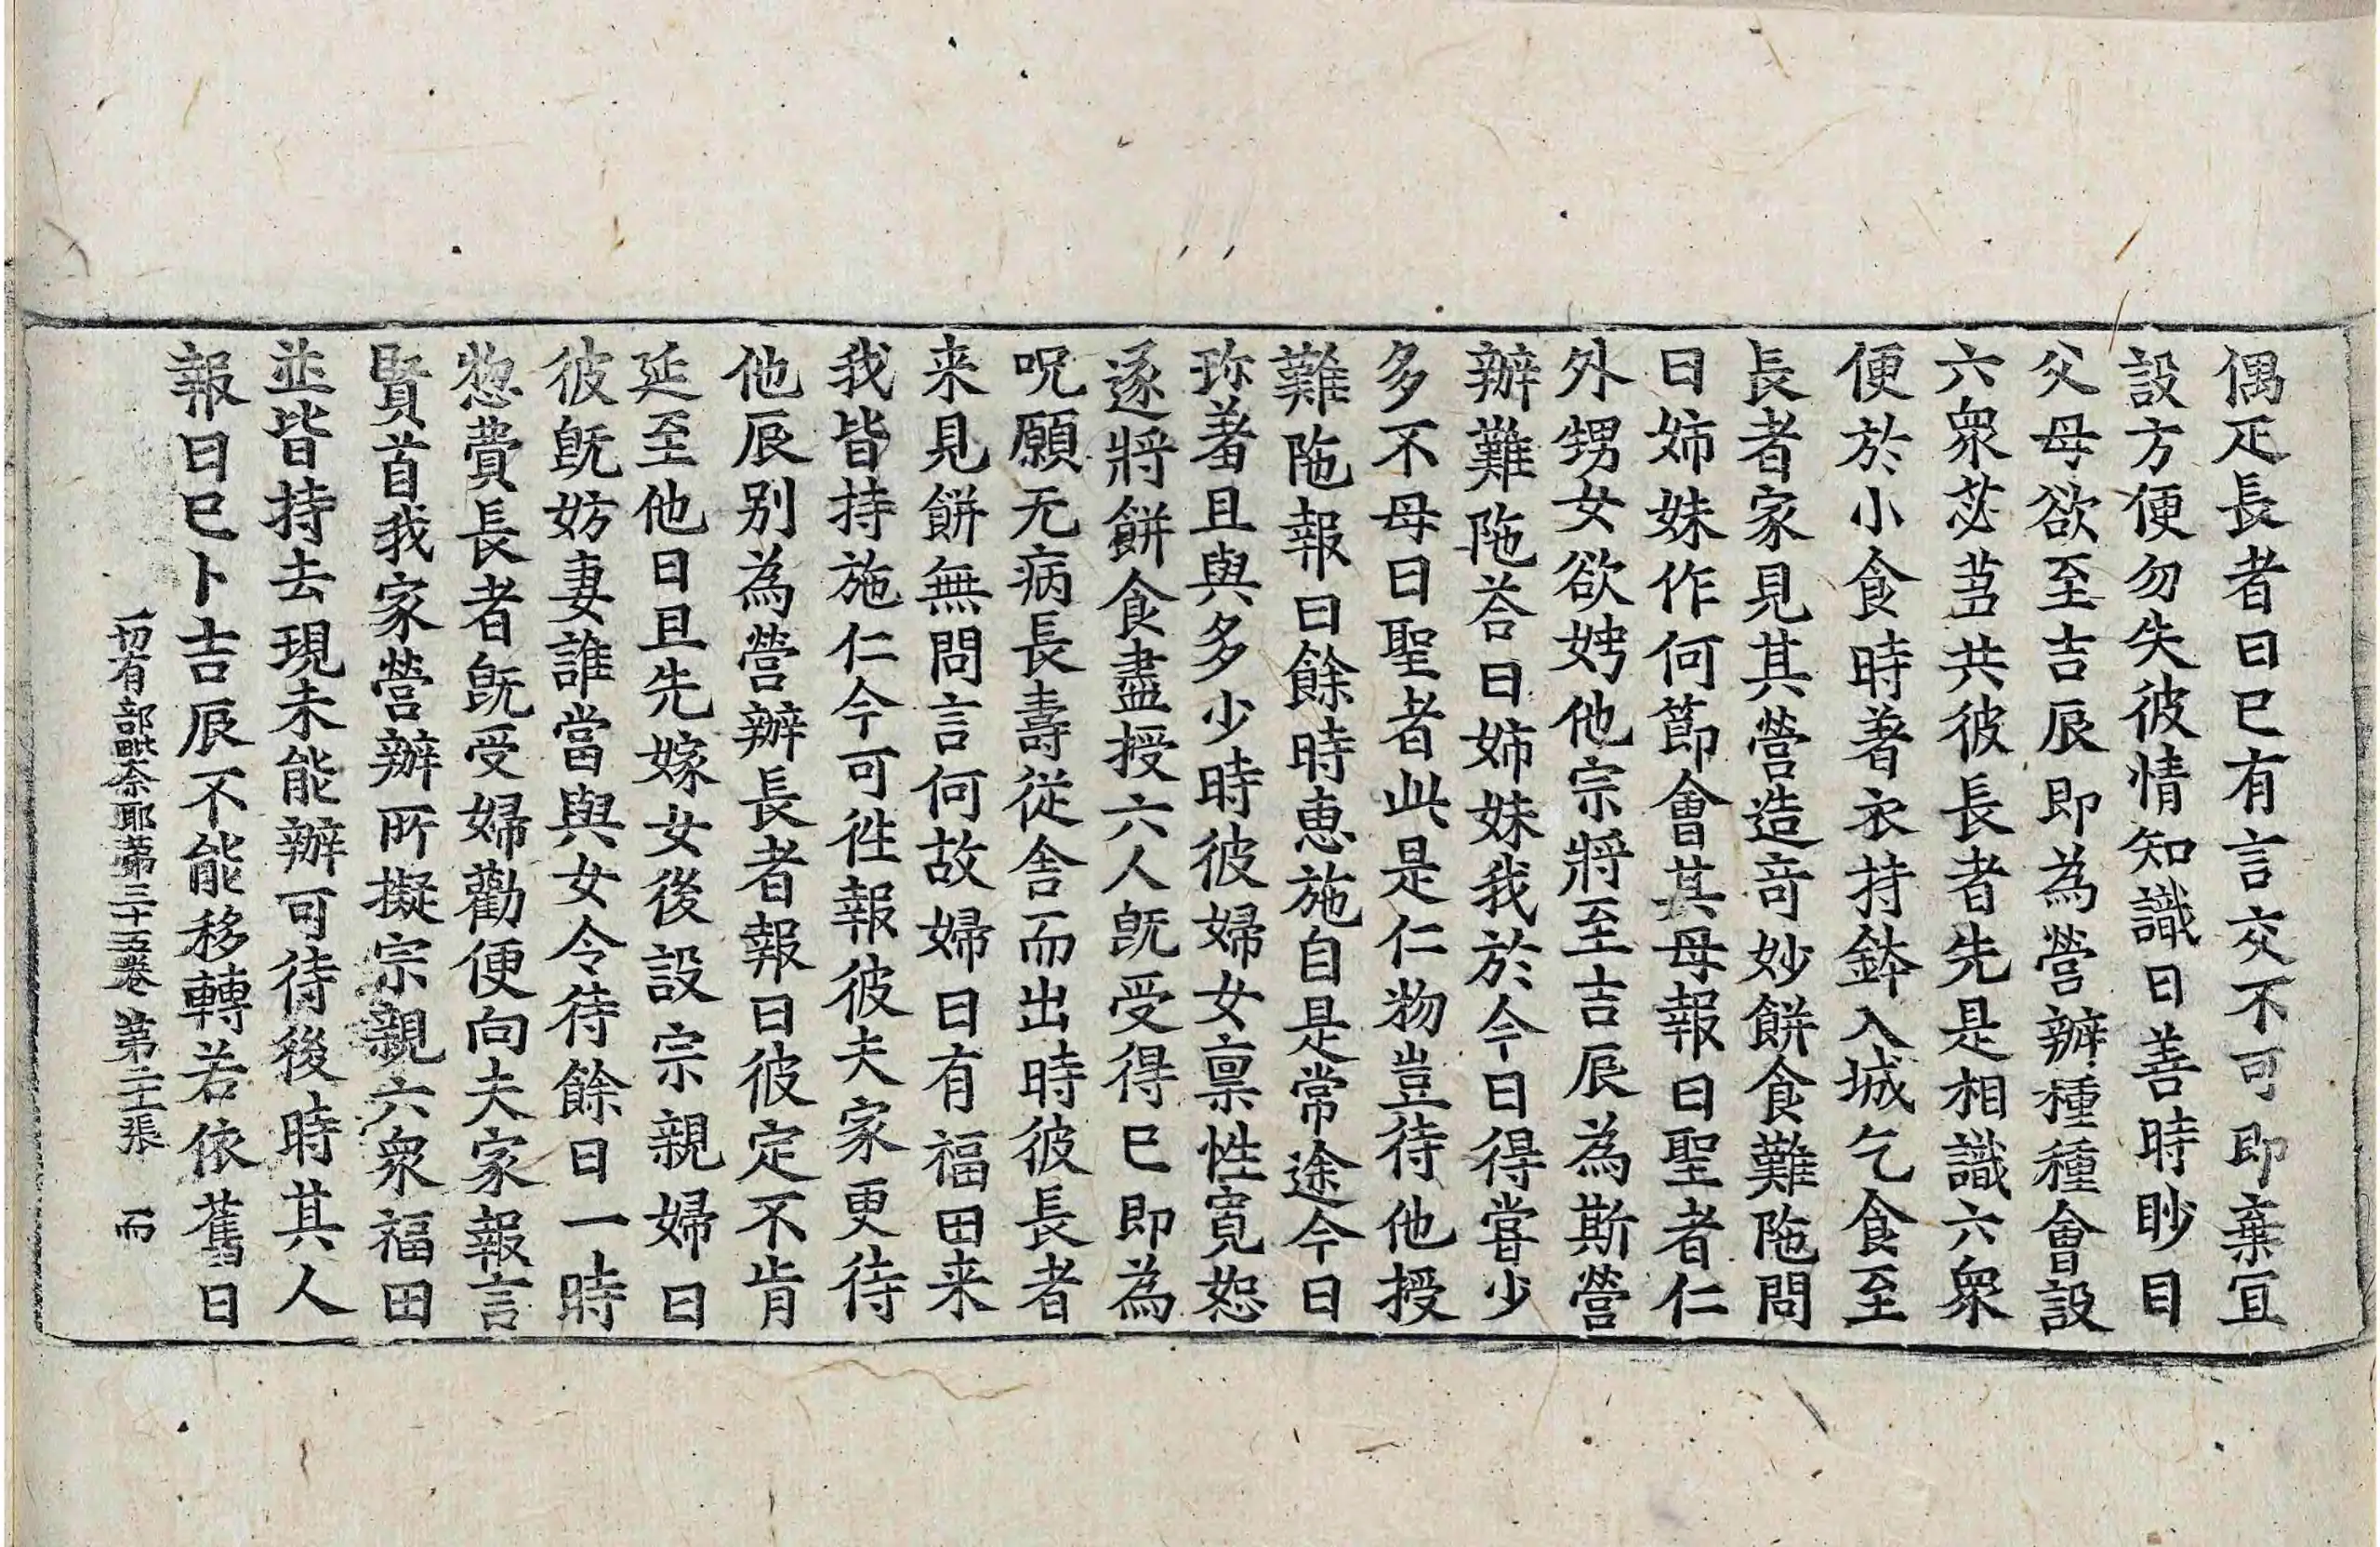 偶疋長者曰已有言交不可即棄冝
設方便勿失彼情知識曰善時眇目
父母欲至吉辰即為營辦種種會設
六衆苾蒭共彼長者先是相識六衆
便於小食時著衣持鉢入城乞食至
長者家見其營造竒妙餅食難陁問
曰姉妹作何節會其母報曰聖者仁
外甥女欲娉他宗將至吉辰為斯營
辦難陁荅曰姉妹我於今日得嘗少
多不母曰聖者此是仁物豈待他授
難陁報曰餘時恵施自是常途今日
珎著且與多少時彼婦女禀性寛恕
逐將餅食盡授六人旣受得已即為
呪願无病長壽從舎而出時彼長者
来見餅無問言何故婦曰有福田来
我皆持施仁今可徃報彼夫家更待
他辰别為營辦長者報曰彼定不肯
延至他日且先嫁女後設宗親婦曰
彼旣妨妻誰當與女令待餘日一時
惣費長者旣受婦勸便向夫家報言
賢首我家營辦所擬宗親六衆福田
並皆持去現未能辦可待後時其人
報曰已卜吉辰不能移轉若依舊日
一切有部毗奈耶苐三十五卷 第二十張 而